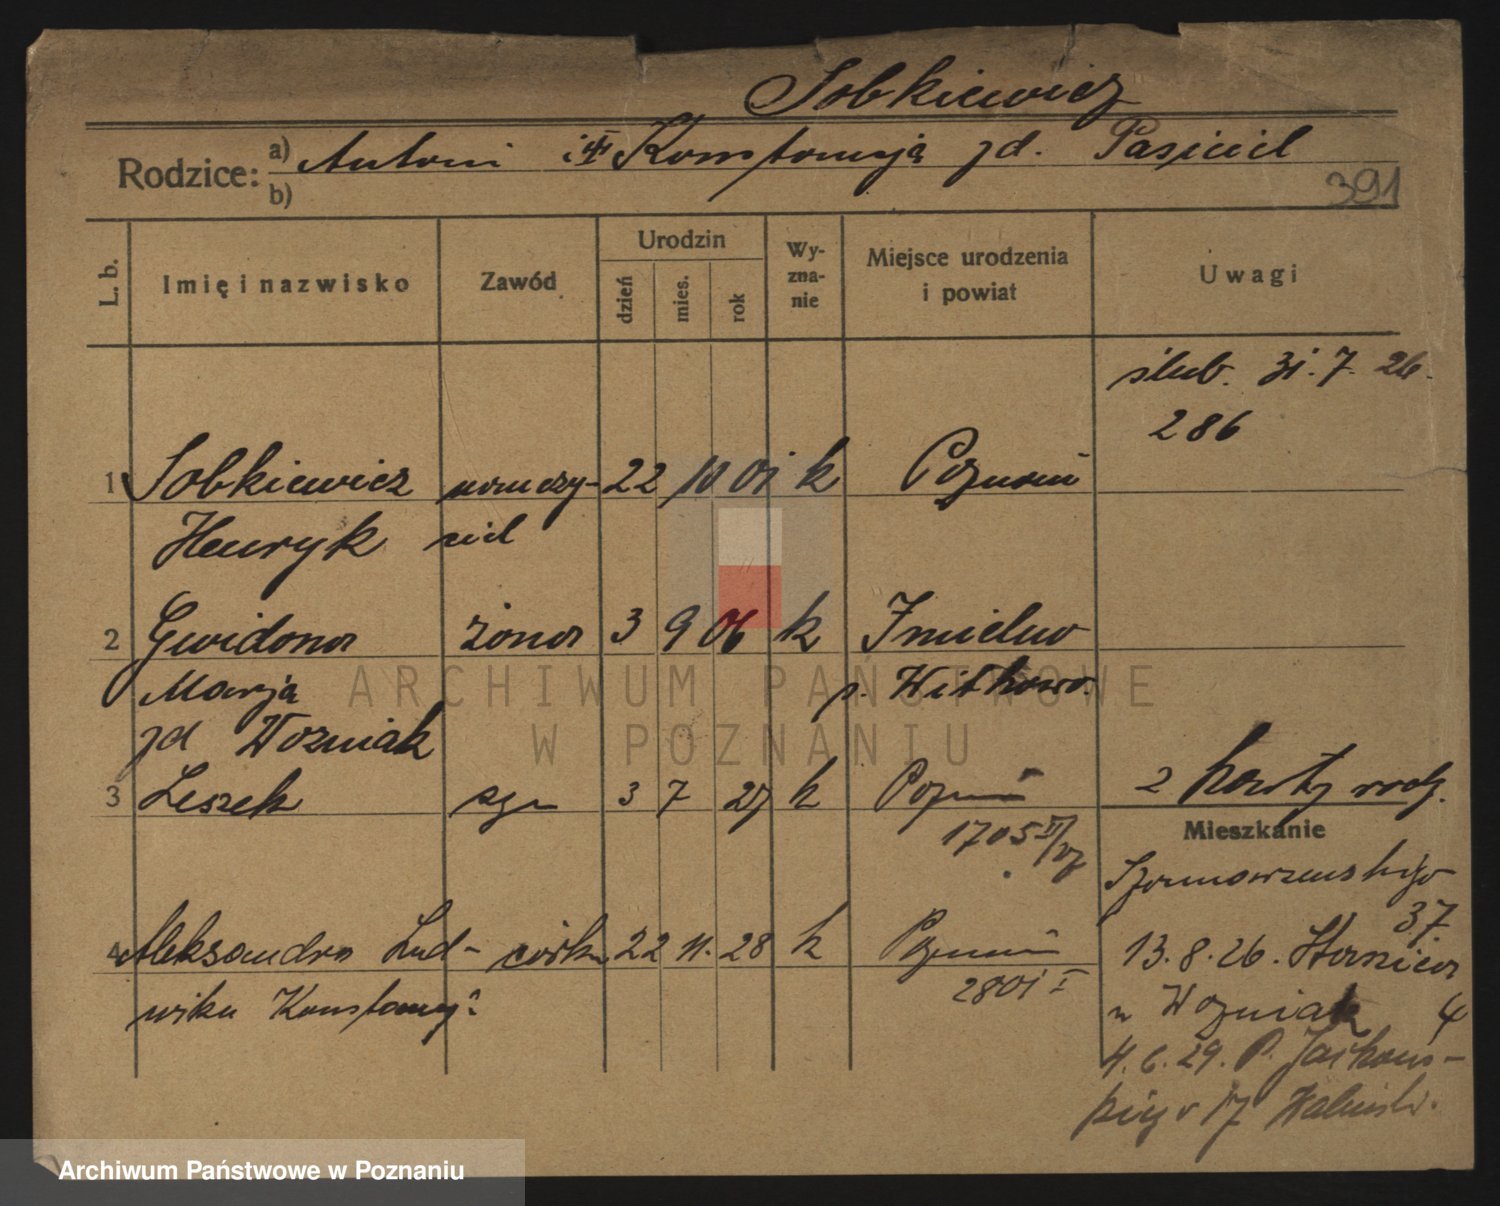 Sobkiewicz
Rodzice: a) Antoni i Konstancja zd.
b)
391
L. b. Imię i nazwisko Zawód Urodzin dzień mies. rok Wy-zna-nie Miejsce urodzenia i powiat Uwagi
ślub. 31.7.26.
286
1 Sobkiewicz nauczy- 22 10 01 k Poznań
Henryk ciel
2 Gwidona żona 3 9 06 k
Marja p. Witkowo.
zd Woźniak
3 Leszek syn 3 7 27 k Poznań 2 karty rodz.
1705
Mieszkanie
Szamarzewskiego
37
4 Aleksandra Lud- córka 22 11. 28 k Poznań 13.8.26.
wika Konstancja 2801 I
u Woźniak 4
4.6.29. P. Jackows-
kiego 17
ARCHIWUM PAŃSTWOWE
W POZNANIU
Archiwum Państwowe w Poznaniu